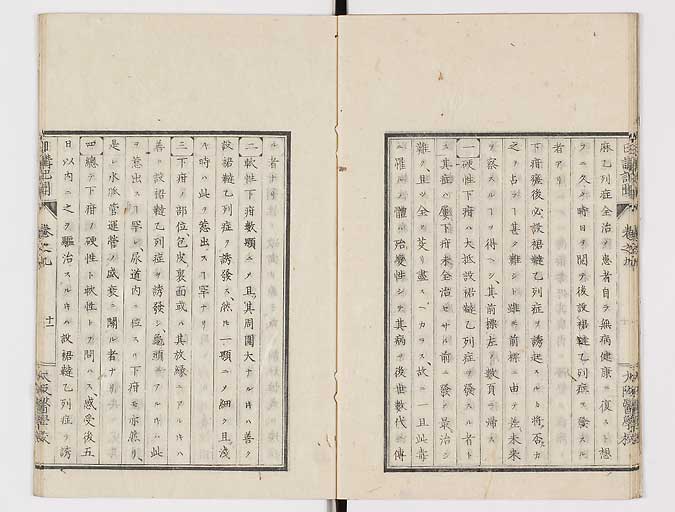 麻乙列症全治ノ患者自ラ無病健康ニ復スト想
ラニ久シク時日ヲ閲テ後設裙韃乙列症ヲ發スル
者アリ
下疳癒後必設裙韃乙列症ヲ誘起スルト將否カ
之ヲ占フ甚タ難シト雖モ前標ニ由テ徃々未来
ヲ察スルヲ得ヘシ其前標左ノ數頁ニ帰ス
一硬性下疳ハ大抵設裙韃乙列症ヲ發スル者ト
ス其症ハ屢下疳未全治セサル前ニ發シ最治シ
難ク且ツ全ク芟リ盡スヘカラス故ニ一旦此毒
ニ罹ル体ハ殆變性シテ其病ヲ後世數代ニ傳
ル者
二軟性下疳數顆ニメ且其周圍大ナルキハ善ク
設裙韃乙列症ヲ誘發ス然ルニ一顆ニメ細ク且淺
キ時ハ此ヲ惹出スヿ罕ナリ
三下疳ノ部位包皮裏面或ハ其放縁ニアルキハ
善ク設裙韃乙列症ヲ誘發シ龜頭ニアルキハ此
ヲ惹出スヿ罕シ尿道内ニ位スル下疳モ亦然リ
是レ水脉管運營ノ盛衰ニ關ル者ナリ
四總テ下疳ノ硬性ト軟性トヲ問ハス感受後五
日以内ニ之ヲ驅治スルキハ設裙韃乙列症ヲ誘
卷之九
十二
大阪醫學校
卷之九
大阪醫學校